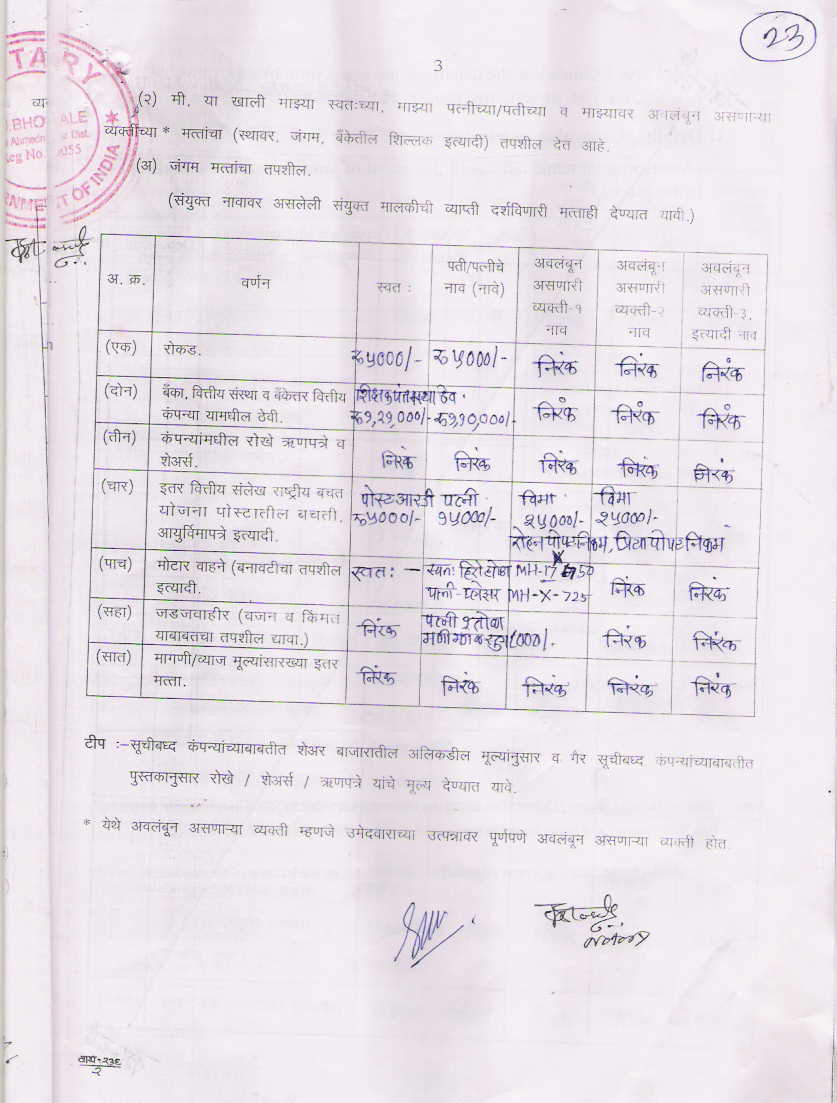 23
3
TARY
व्य
.BHO ALE
Ahmedn Dist.
Reg No. 055
RNMENT OF INDIA
(२) मी, या खाली माझ्या स्वतःच्या, माझ्या पत्नीच्या/पतीच्या व माझ्यावर अवलंबून असणाऱ्या
व्यक्तींच्या * मत्तांचा (स्थावर, जंगम, बँकेतील शिल्लक इत्यादी) तपशील देत आहे.
(अ) जंगम मत्तांचा तपशील.
(संयुक्त नावावर असलेली संयुक्त मालकीची व्याप्ती दर्शविणारी मत्ताही देण्यात यावी.)
अ. क्र. वर्णन स्वत : पती/पत्नीचे नाव (नावे) अवलंबून असणारी व्यक्ती-१ नाव अवलंबून असणारी व्यक्ती-२ नाव अवलंबून असणारी व्यक्ती-३, इत्यादी नाव
(एक) रोकड. रु ५000/- रु ५000/- निरंक निरंक निरंक
(दोन) बँका, वित्तीय संस्था व बँकेतर वित्तीय शिक्षक पतसंस्था ठेव
कंपन्या यामधील ठेवी. रु१,२१,000/- रु१,१0,000/- निरंक निरंक निरंक
(तीन) कंपन्यांमधील रोखे ऋणपत्रे व
शेअर्स. निरंक निरंक निरंक निरंक निरंक
(चार) इतर वित्तीय संलेख राष्ट्रीय बचत पोस्ट आरडी पत्नी विमा विमा
योजना पोस्टातील बचती, रु५000/- १५000/- २५000/- २५000/-
आयुर्विमापत्रे इत्यादी. निकम, प्रिया पोपट निकम
(पाच) मोटार वाहने (बनावटीचा तपशील स्वत: - स्वतः हिरो होंडा MH-17 50
इत्यादी. पत्नी - प्लेसर MH-X-725 निरंक निरंक
(सहा) जडजवाहीर (वजन व किंमत निरंक पत्नी तोळा
याबाबतचा तपशील द्यावा.) निरंक निरंक
(सात) मागणी/व्याज मूल्यांसारख्या इतर निरंक
मत्ता. निरंक निरंक निरंक निरंक
टीप :–सूचीबध्द कंपन्यांच्याबाबतीत शेअर बाजारातील अलिकडील मूल्यांनुसार व गैर सूचीबध्द कंपन्यांच्याबाबतीत
पुस्तकानुसार रोखे / शेअर्स / ऋणपत्रे यांचे मूल्य देण्यात यावे.
* येथे अवलंबून असणाऱ्या व्यक्ती म्हणजे उमेदवाराच्या उत्पन्नावर पूर्णपणे अवलंबून असणाऱ्या व्यक्ती होत.
Notary
२